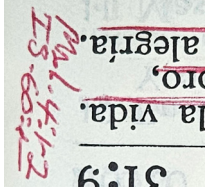 la vida.
oro,
alegría.
Mal. 4:1,2
IS-60:1